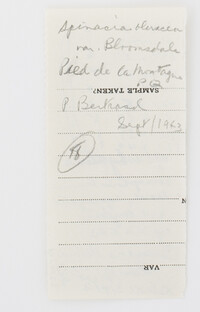 Spinacia oleracea
var. Bloomsdale
Pied de la Montagne
P.Q.
SAMPLE TAKEN?
P. Bertrand
Sept/1963
VAR